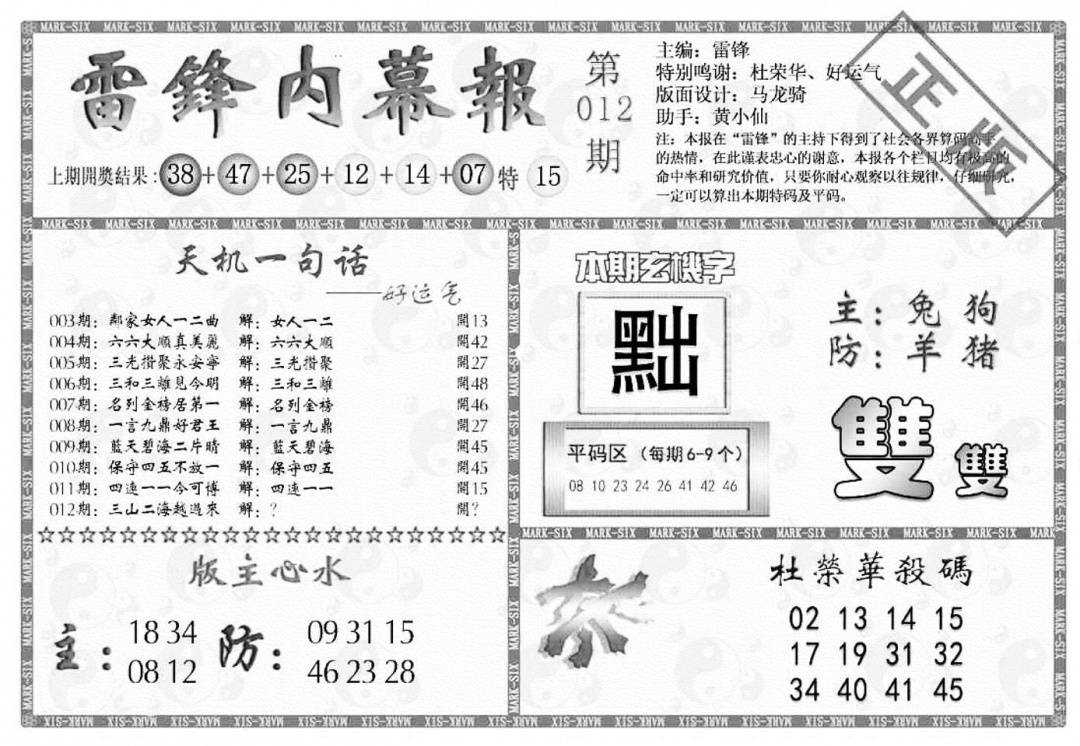 雷鋒内幕報
第012期
主编：雷锋
特别鸣谢：杜荣华、好运气
版面设计：马龙骑
助手：黄小仙
注：本报在“雷锋”的主持下得到了社会各界算码高手
的热情，在此谨表忠心的谢意，本报各个栏目均有极高的
命中率和研究价值，只要你耐心观察以往规律，仔细研究，
一定可以算出本期特码及平码。
正版
上期開獎结果：38+47+25+12+14+07特 15
天机一句话
——好运气
003期：鄰家女人一二曲 解：女人一二 開13
004期：六六大順真美麗 解：六六大順 開42
005期：三光攢聚永安寧 解：三光攢聚 開27
006期：三和三離見今明 解：三和三離 開48
007期：名列金榜居第一 解：名列金榜 開46
008期：一言九鼎好君王 解：一言九鼎 開27
009期：藍天碧海二片晴 解：藍天碧海 開45
010期：保守四五不放一 解：保守四五 開45
011期：四速一一今可博 解：四速一一 開15
012期：三山二海越過來 解：？ 開？
☆☆☆☆☆☆☆☆☆☆☆☆☆☆☆☆☆☆☆☆☆☆☆☆
本期玄機字
黜
平码区（每期6-9个）
08 10 23 24 26 41 42 46
主：兔 狗
防：羊 猪
雙 雙
版主心水
主：18 34
08 12
防：09 31 15
46 23 28
杀
杜榮華殺碼
02 13 14 15
17 19 31 32
34 40 41 45
MARK-SIX